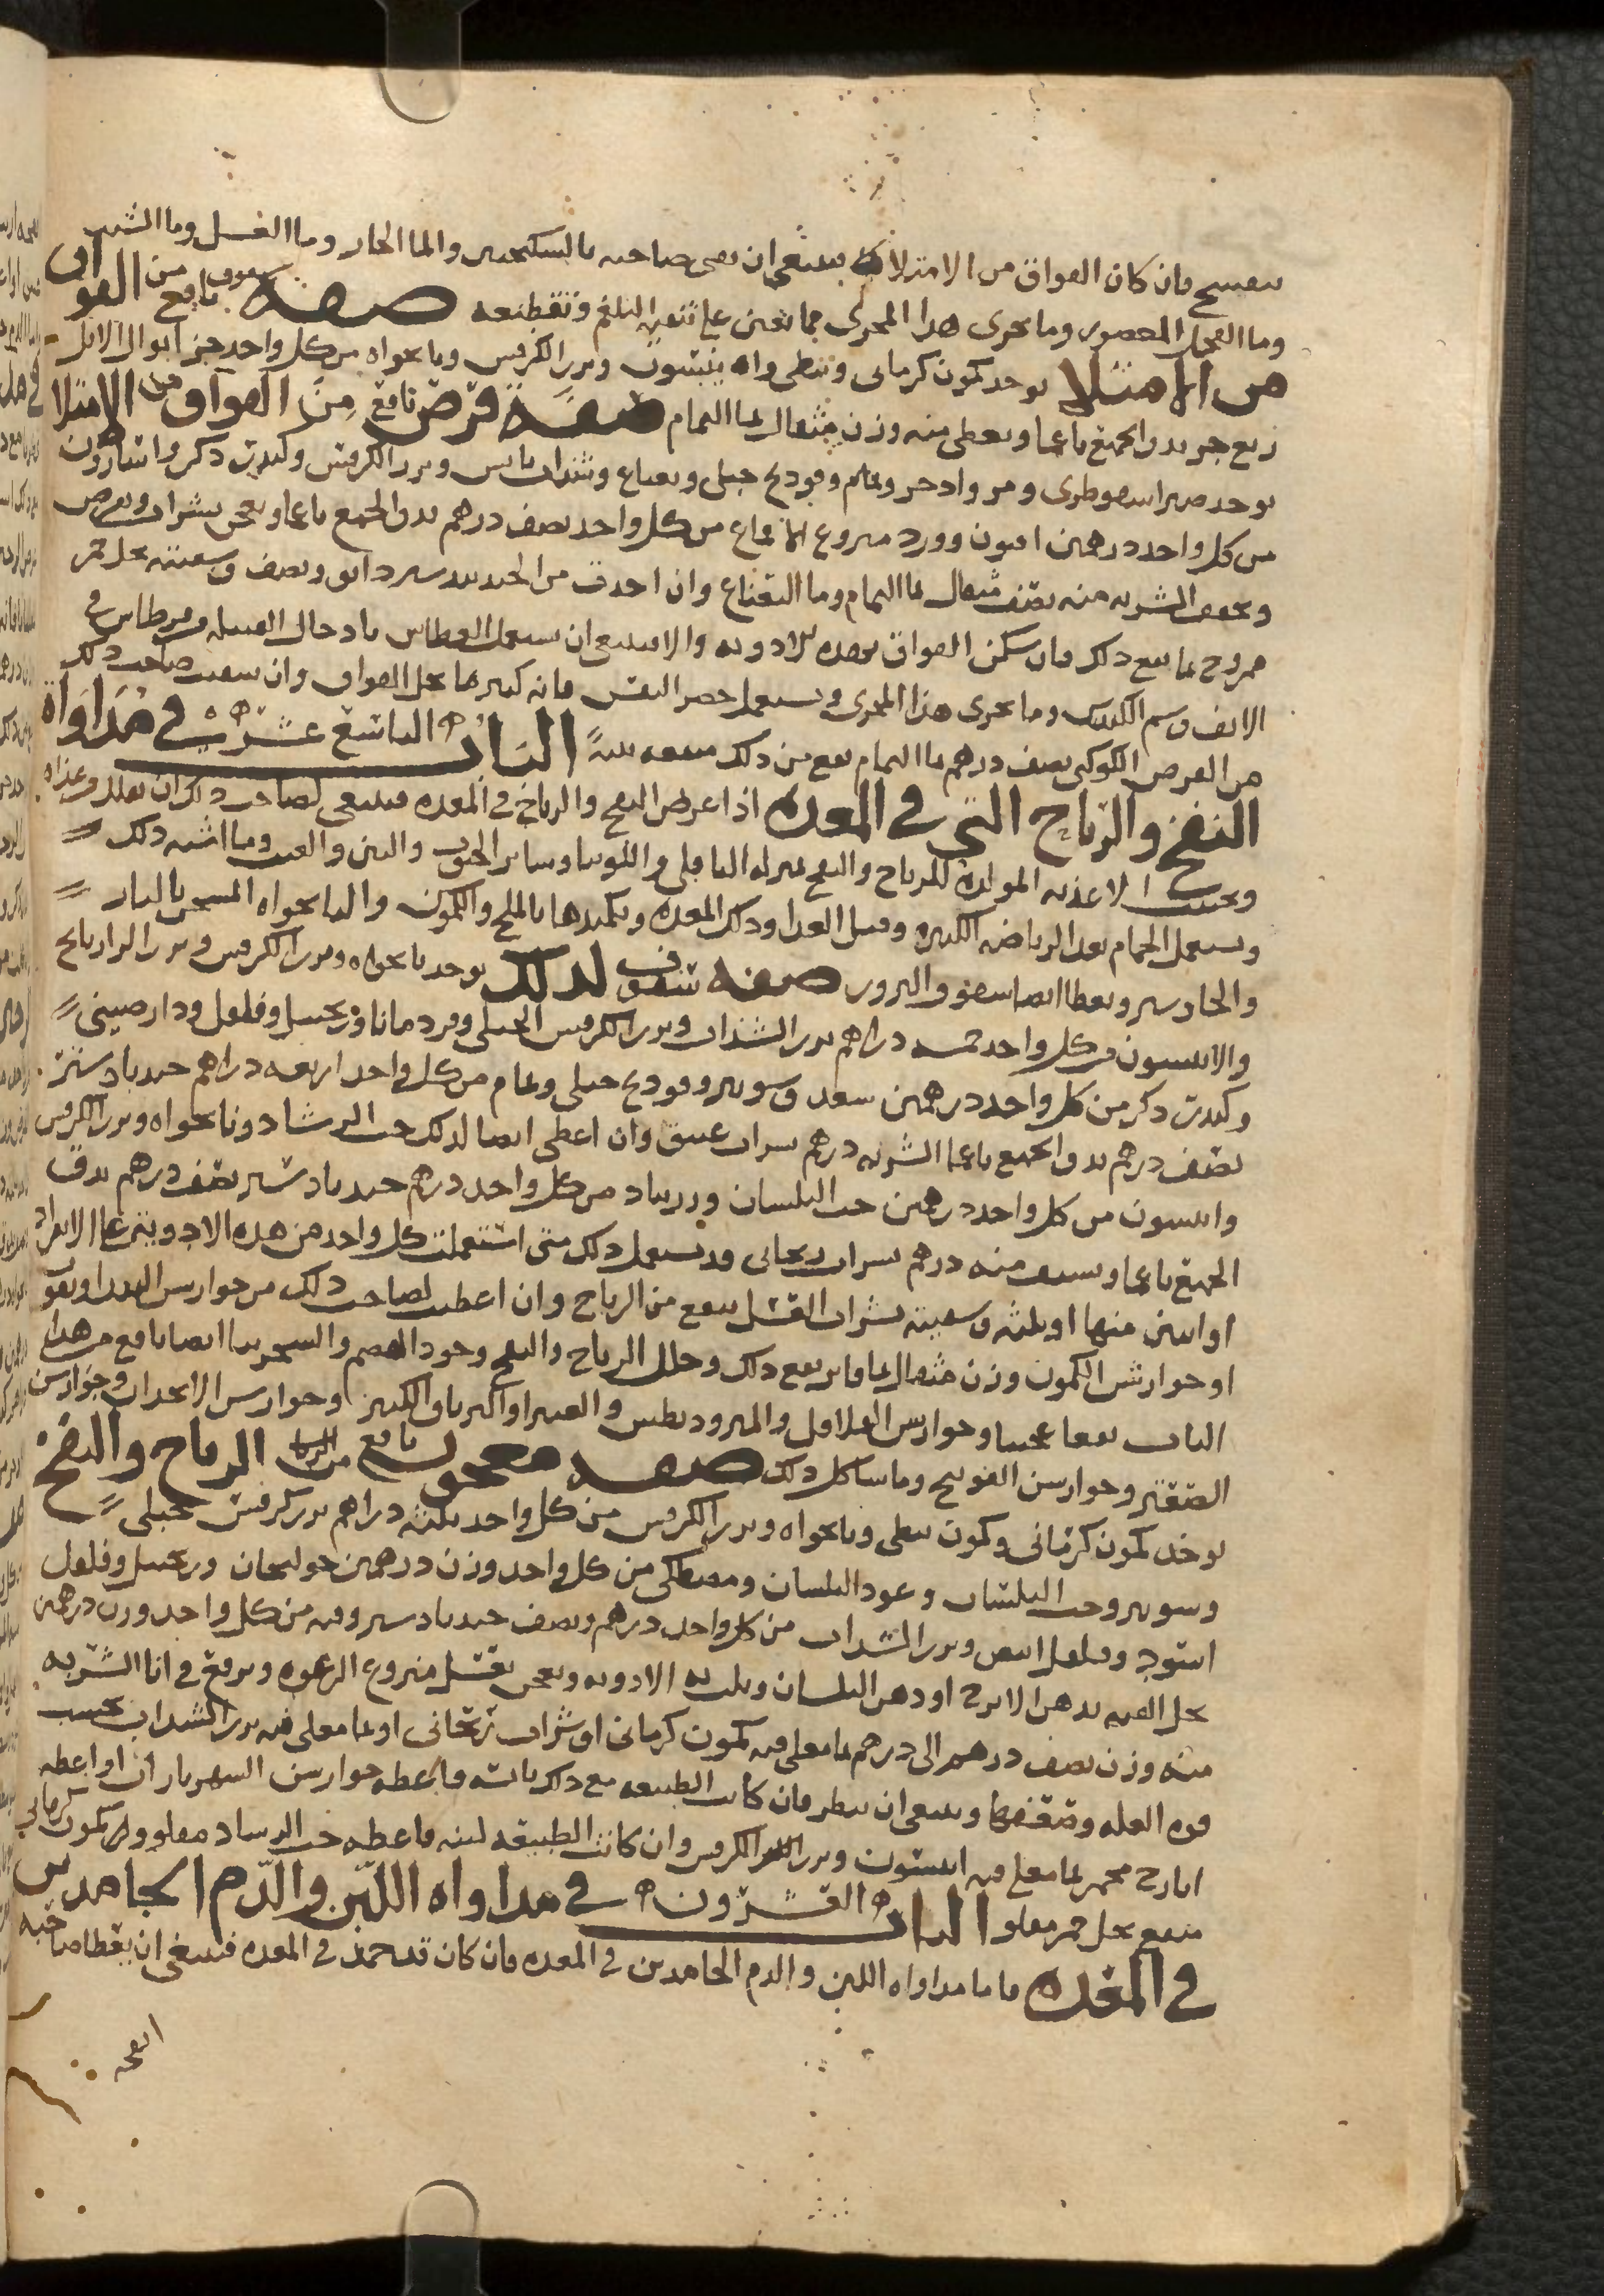 بنفسج فان كان الفواق من الامتلا فينبغي ان يقي صاحبه بالسكنجبين والما الحار وما العسل وما الشبث
وما الفجل المعصور وما يجرى هذا المجرى مما يعين على تنقيه البلغم وتقطيعه صفه سفوف نافع من الفواق
من الامتلا يوخذ كمون كرمانى ونبطى وانيسون وبزر الكرفس ونانخواه من كل واحد جز ابوال الابل
ربع جز يدق الجميع ناعما ويعطى منه وزن مثقال بما النمام صفة قرص نافع من الفواق من الامتلا
يوخذ صبر اسقوطرى ومر واذخر ونمام وفودنج جبلى ونعناع وسذاب يابس وبزر الكرفس وكندر ذكر واسارون
من كل واحد درهمين افيون وورد منزوع الاقماع من كل واحد نصف درهم يدق الجميع ناعما ويعجن بشراب ويقرص
ويجفف الشربه منه نصف مثقال بما النمام وما النعناع وان اخذت من الجندبيدستر دانق ونصف وسقيته بخل خمر
ممزوج بما نفع ذلك فان سكن الفواق بهذه الادويه والا فينبغي ان يستعمل العطاس بادخال الفتيله من قرطاس في
الانف وشم الكندس وما يجرى هذا المجرى ويستعمل حصر النفس فانه كثيرا ما يحل الفواق وان سقيت صاحب ذلك
من القرص الكوكبى نصف درهم بما النمام نفع من ذلك منفعه بينةً الباب التاسع عشر في مداواة
النفخ والرياح التي في المعده اذا عرض النفخ والرياح في المعده فينبغي لصاحب ذلك ان يقلل من غذاه
ويجتنب الاغذيه المولده للرياح والنفخ بمنزله الباقلى واللوبيا وساير الحبوب والتين والعنب وما اشبه ذلك
ويستعمل الحمام بعد الرياضه الكثيره وقبل الغذا ودلك المعده وتكميدها بالملح والكمون والنانخواه المسخن بالنار
والجاورس ويعطا ايضا سفوف البزور صفه سفوف لذلك يوخذ نانخواه وبزر الكرفس وبزر الرازيانج
والانيسون من كل واحد خمسه دراهم بزر السذاب وبزر الكرفس الجبلى وقردمانا وزنجبيل وفلفل ودارصينى
وكندر ذكر من كل واحد درهمين سعد وشونيز وفودنج جبلى ونمام من كل واحد اربعه دراهم جندبادستر
نصف درهم يدق الجميع ناعما الشربه درهم بشراب عتيق وان اعطى ايضا لذلك حب الرشاد ونانخواه وبزر الكرفس
وانيسون من كل واحد درهمين حب البلسان وزرنباد من كل واحد درهم جندبادستر نصف درهم يدق
الجميع ناعما ويسقى منه درهم بشراب ريحانى قد يستعمل ذلك متى استعملت كل واحد من هذه الادويه على الانفراد
او اثنين منها او ثلثه وسقيته بشراب العسل ينفع من الرياح وان اعطيت لصاحب ذلك من جوارش
او جوارش الكمون وزن مثقال بما فاتر نفع ذلك وحلل الرياح والنفخ وجود الهضم والسجزنيا ايضا نافع من هذا
الباب نفعا عجيبا وجوارش الفلافل والمثروديطوس والترياق الكبير وجوارش الانجدان وجوارش
وجوارش الفودنج وما شاكل ذلك صفه معجون نافع من الرياح والنفخ
يوخذ كمون كرمانى وكمون نبطى ونانخواه وبزر الكرفس من كل واحد ثلثه دراهم بزر كرفس جبلى
وشونيز وحب البلسان وعود البلسان ومصطكى من كل واحد وزن درهمين خولنجان وزنجبيل وفلفل
اسود وفلفل ابيض وبزر السذاب من كل واحد درهم ونصف جندبادستر وقنه من كل واحد وزن درهمين
تحل القنه بدهن الاترج او دهن البلسان ويلت به الادويه ويعجن بعسل منزوع الرغوه ويرفع في انا الشربه
منه وزن نصف درهم الى درهم بما مغلى فيه كمون كرمانى او شراب ريحانى او بما مغلى فيه بزر السذاب بحسب
قوه العله وضعفها وينبغي ان ينظر فان كانت الطبيعه مع ذلك يابسه فاعطه جوارش الشهرياران او اعطه
ايارج مخمر بما مغلى فيه انيسون وبزر الكرفس وان كانت الطبيعه لينه فاعطه حب الرشاد مقلو وكمون كرمانى
منقع بخل خمر مقلو الباب العشرون في مداواه اللبن والدم الجامدين
في المعده فاما مداواه اللبن والدم الجامدين في المعده فان كان قد جمد في المعده فينبغي ان يعطا صاحبه
انفحه